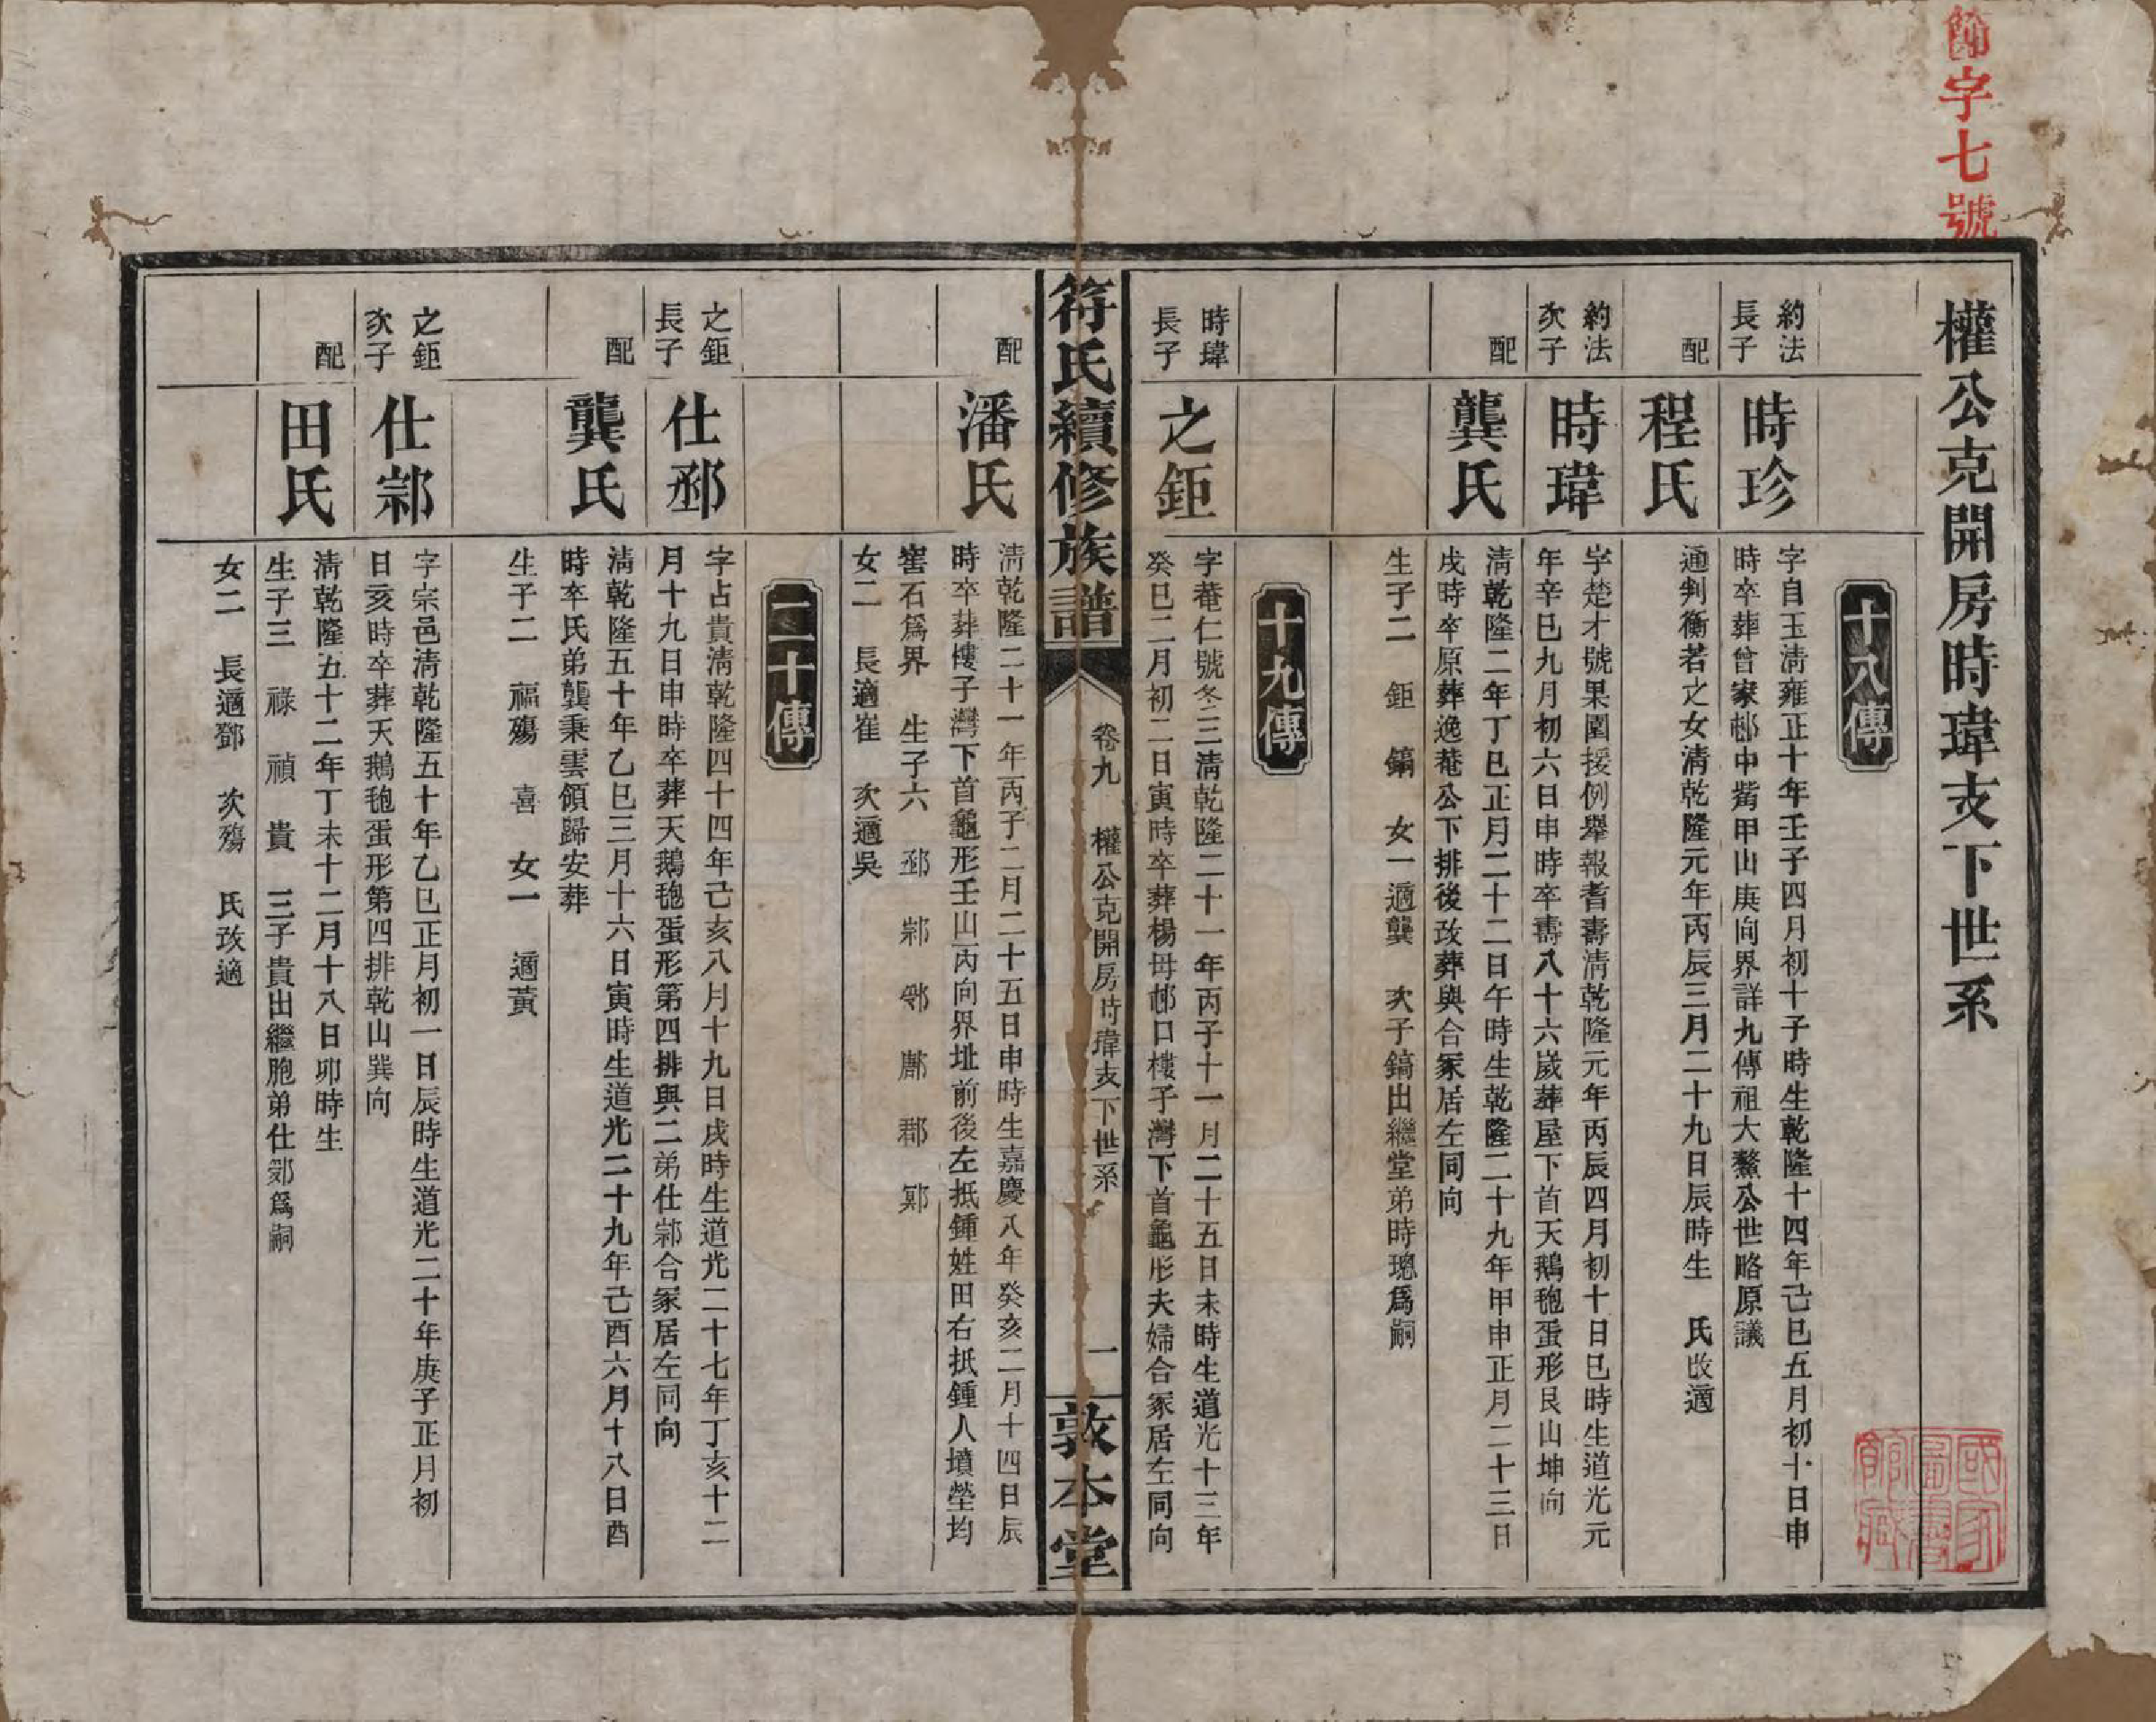 字七號
權公克開房時瑋支下世系
十八傳
約法長子
時珍
字自玉清雍正十年壬子四月初十子時生乾隆十四年己巳五月初十日申
時卒葬曾家郙中嘴甲山庚向界詳九傳祖大鰲公世略原議
配
程氏
通判衡若之女清乾隆元年丙辰三月二十九日辰時生　氏改適
約法次子
時瑋
字楚才號果園援例舉報耆壽清乾隆元年丙辰四月初十日巳時生道光元
年辛巳九月初六日申時卒壽八十六歲葬屋下首天鵝菢蛋形艮山坤向
配
龔氏
清乾隆二年丁巳正月二十二日午時生乾隆二十九年甲申正月二十三日
戌時卒原葬逸菴公下排後改葬與合冢居左同向
生子二　鉅　鎬　女一適龔　次子鎬出繼堂弟時璁爲嗣
十九傳
時瑋長子
之鉅
字菴仁號冬三清乾隆二十一年丙子十一月二十五日未時生道光十三年
癸巳二月初二日寅時卒葬楊毋郙口樓子灣下首龜形夫婦合冢居左同向
符氏續修族譜
卷九　權公克開房時瑋支下世系
一
敦本堂
配
潘氏
清乾隆二十一年丙子二月二十五日申時生嘉慶八年癸亥二月十四日辰
時卒葬樓子灣下首龜形壬山丙向界址前後左抵鍾姓田右抵鍾人墳塋均
窖石爲界　生子六　邳　郲　鄋　鄘　郡　鄍
女二　長適崔　次適吳
二十傳
之鉅長子
仕邳
字占貴清乾隆四十四年己亥八月十九日戌時生道光二十七年丁亥十二
月十九日申時卒葬天鵝菢蛋形第四排與二弟仕郲合冢居左同向
配
龔氏
清乾隆五十年乙巳三月十六日寅時生道光二十九年己酉六月十八日酉
時卒氏弟龔秉雲領歸安葬
生子二　福殤　喜　女一　適黃
之鉅次子
仕郲
字宗邑清乾隆五十年乙巳正月初一日辰時生道光二十年庚子正月初
日亥時卒葬天鵝菢蛋形第四排乾山巽向
配
田氏
清乾隆五十二年丁未十二月十八日卯時生
生子三　祿　禎　貴　三子貴出繼胞弟仕郊爲嗣
女二　長適鄧　次殤　氏改適
國家圖書館藏